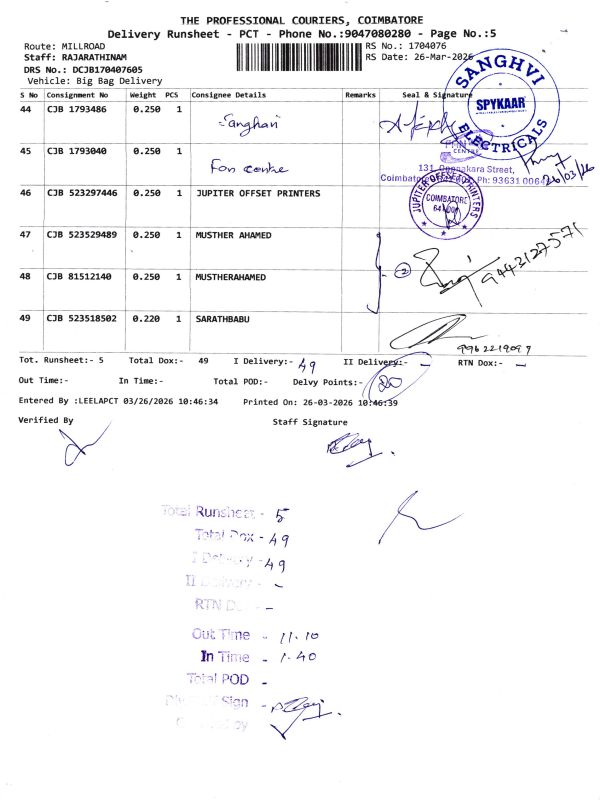 THE PROFESSIONAL COURIERS, COIMBATORE
Delivery Runsheet - PCT - Phone No.:9047080280 - Page No.:5
Route: MILLROAD
RS No.: 1704076
Staff: RAJARATHINAM
RS Date: 26-Mar-2026
DRS No.: DCJB170407605
Vehicle: Big Bag Delivery
S No Consignment No Weight PCS Consignee Details Remarks Seal & Signature
44 CJB 1793486 0.250 1 Sanghavi
SANGHVI
SPYKAAR
ELECTRICALS
45 CJB 1793040 0.250 1 Fon centre
CENTRE
Street,
Ph: 93631
26/03/26
46 CJB 523297446 0.250 1 JUPITER OFFSET PRINTERS
JUPITER OFFSET PRINTERS
COIMBATORE
47 CJB 523529489 0.250 1 MUSTHER AHAMED
2
9443127571
48 CJB 81512140 0.250 1 MUSTHERAHAMED
49 CJB 523518502 0.220 1 SARATHBABU
Tot. Runsheet:- 5 Total Dox:- 49 I Delivery:- 49 II Delivery:- - RTN Dox:- -
Out Time:- In Time:- Total POD:- Delvy Points:- 20
Entered By :LEELAPCT 03/26/2026 10:46:34 Printed On: 26-03-2026 10:46:39
Verified By Staff Signature
Total Runsheet - 5
Total Dox - 49
I Delivery - 49
II Delivery - -
RTN D - -
Out Time - 11.10
In Time - 1.40
Total POD -
Sign -
by